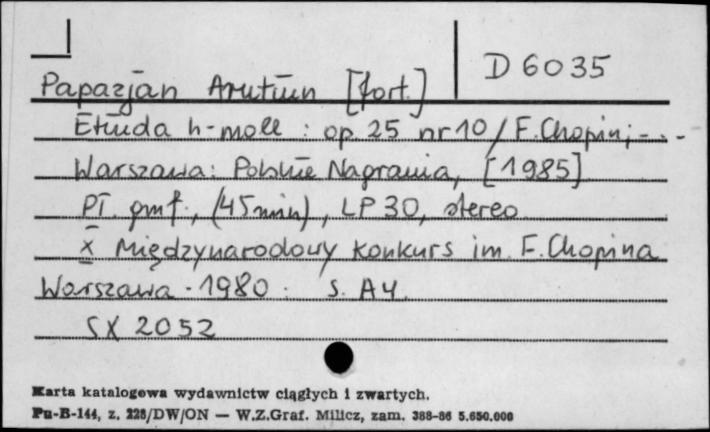 D 6035
Papazjan Arutiun [fort.]
Etiuda h-moll : op. 25 nr 10 / F. Chopin; - . -
Warszawa: Polskie Nagrania, [1985]
Pł. gmf., (45 min), LP 30, stereo
X Międzynarodowy Konkurs im. F. Chopina
Warszawa - 1980. S. A4.
SX 2052
Karta katalogowa wydawnictw ciągłych i zwartych.
Pu-B-144, z. 228/DW/ON — W.Z.Graf. Milicz, zam. 388-86 5.650.000